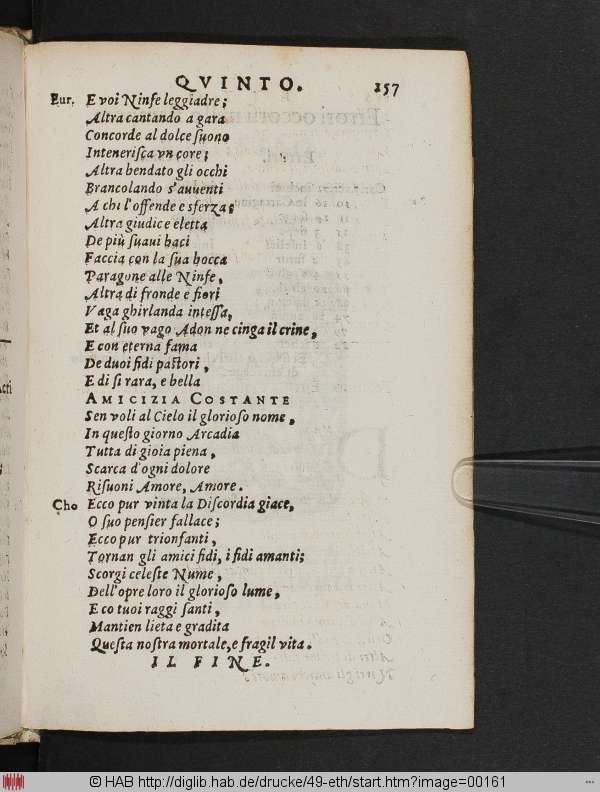 QVINTO. 157
Eur. E voi Ninfe leggiadre;
Altra cantando a gara
Concorde al dolce ſuono
Inteneriſca vn core;
Altra bendato gli occhi
Brancolando s'auuenti
A chi l'offende e sferza;
Altra giudice eletta
De più ſuaui baci
Faccia con la sua bocca
Paragone alle Ninfe,
Altra di fronde e fiori
Vaga ghirlanda inteſſa,
Et al ſuo vago Adon ne cinga il crine,
E con eterna fama
De duoi fidi paſtori,
E di ſi rara, e bella
AMICIZIA COSTANTE
Sen voli al Cielo il glorioſo nome,
In queſto giorno Arcadia
Tutta di gioia piena,
Scarca d'ogni dolore
Riſuoni Amore, Amore.
Cho Ecco pur vinta la Diſcordia giace,
O ſuo penſier fallace;
Ecco pur trionfanti,
Tornan gli amici fidi, i fidi amanti;
Scorgi celeſte Nume,
Dell'opre loro il glorioſo lume,
E co tuoi raggi ſanti,
Mantien lieta e gradita
Queſta noſtra mortale, e fragil vita.
IL FINE.
© HAB http://diglib.hab.de/drucke/49-eth/start.htm?image=00161